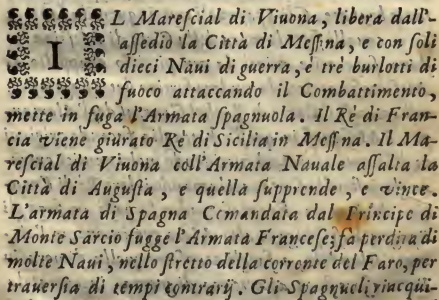 IL Marefcial di Viuona, libera dall'-
affedio la Città di Meffina, e con foli
dieci Naui di guerra, e trè burlotti di
fuoco attaccando il Combattimento,
mette in fuga l'Armata fpagnuola. Il Rè di Fran-
cia viene giurato Rè di Sicilia in Meffina. Il Ma-
refcial di Viuona coll'Armata Nauale affalta la
Città di Augufta, e quella fupprende, e vince.
L'armata di Spagna Comandata dal Principe di
Monte Sarcio fugge l'Armata Francefe; fa perdita di
molte Naui, nello ftretto della corrente del Faro, per
trauerfia di tempi contrarij. Gli Spagnuoli riacqui-